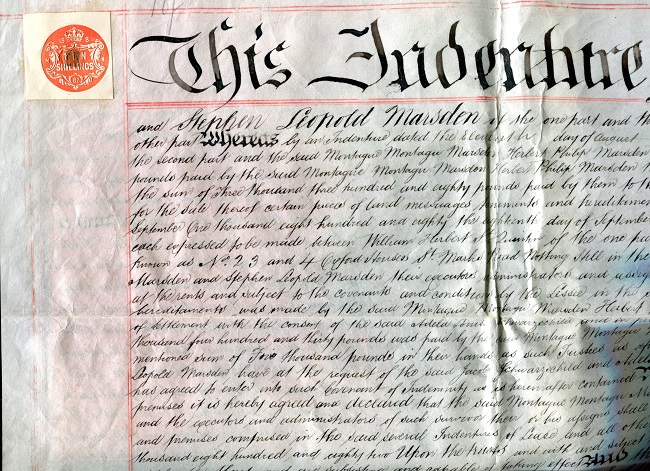 TEN
SHILLINGS
This Indenture
and Stephen Leopold Marsden of the one part and th
other part Whereas by an Indenture dated the eleventh day of August
the second part and the said Montague Montague Marsden Herbert Philip Marsden
pounds paid by the said Montague Montague Marsden Herbert Philip Marsden
the sum of Three thousand three hundred and eighty pounds paid by them to th
for the sale thereof certain piece of land messuages tenements and hereditamen
September One thousand eight hundred and eighty the eighteenth day of September
each expressed to be made between William Herbert of the one par
Known as Nos 2 3 and 4 Oxford Houses St Marks Road Notting Hill in the
Marsden and Stephen Leopold Marsden their executors administrators and assig
at the rents and subject to the covenants and conditions by the Lessee in the s
hereditaments was made by the said Montague Montague Marsden Herbert
of Settlement with the consent of the said Adela Schwarzschild and in
thousand four hundred and thirty pounds was paid by the said Montague Montague
mentioned sum of Two thousand pounds in their hands as such Trustees as af
Leopold Marsden have at the request of the said Jacob Schwarzschild and Adela
has agreed to enter into such Covenant of Indemnity as is hereinafter contained
premises it is hereby agreed and declared that the said Montague Montague Ma
and the executors and administrators of such survivor their or his assigns shall
and premises comprised in the said several Indentures of Lease and all othe
thousand eight hundred and eighty two Upon the trusts and with and subject
taking effect And